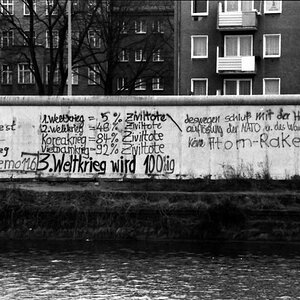 1. Weltkrieg = 5 % Ziviltote
2. Weltkrieg = 48 % Ziviltote
Koreakrieg = 84 % Ziviltote
Vietnamkrieg = 92 % Ziviltote
3. Weltkrieg wird 100%ig
deswegen schluß mit der
auflösung der NATO u. des
kein Atom-Rake